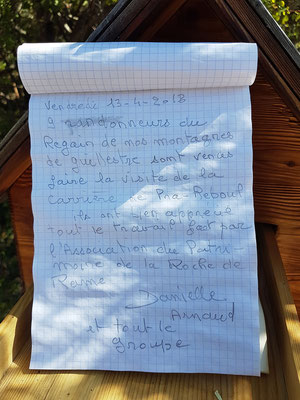 Vendredi 13-4-2018
9 randonneurs du
Regain de nos montagnes
de guillestre sont venus
faire la visite de la
carrière de Pra-Reboul
ils ont apprécié
tout le travail fait par
l'Association du Patri-
moine de la Roche de
Rame
Danielle
Arnaud
et tout le
groupe